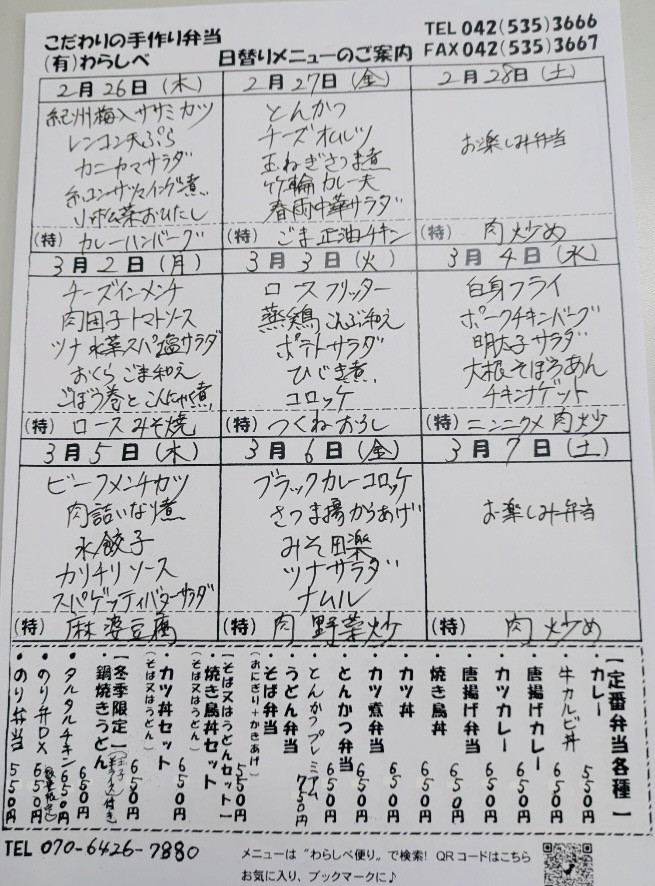 こだわりの手作り弁当
(有)わらしべ
日替りメニューのご案内
TEL 042(535)3666
FAX 042(535)3667
2月26日(木)
紀州梅入ササミカツ
レンコン天ぷら
カニカマサラダ
糸コンサツマイング煮
小松菜おひたし
(特) カレーハンバーグ
2月27日(金)
とんかつ
チーズオムレツ
玉ねぎさつま煮
竹輪カレー天
春雨中華サラダ
(特) ごま正油チキン
2月28日(土)
お楽しみ弁当
(特) 肉炒め
3月2日(月)
チーズインメンチ
肉団子トマトソース
ツナ水菜スパ塩サラダ
おくらごま和え
ごぼう巻とこんにゃく煮
(特) ロースみそ焼
3月3日(火)
ロースフリッター
蒸鶏こんぶ和え
ポテトサラダ
ひじき煮
コロッケ
(特) つくねおろし
3月4日(水)
白身フライ
ポークチキンバーグ
明太子サラダ
大根そぼろあん
チキンナゲット
(特) ニンニクメ肉炒
3月5日(木)
ビーフメンチカツ
肉詰いなり煮
水餃子
カリチリソース
スパゲッティバターサラダ
(特) 麻婆豆腐
3月6日(金)
ブラックカレーコロッケ
さつま揚からあげ
みそ田楽
ツナサラダ
ナムル
(特) 肉野菜炒
3月7日(土)
お楽しみ弁当
(特) 肉炒め
【定番弁当各種】
・カレー 550円
・牛カルビ丼 650円
・唐揚げカレー 650円
・カツカレー 650円
・唐揚げ弁当 650円
・焼き鳥丼 650円
・カツ丼 650円
・カツ煮弁当 650円
・とんかつ弁当 650円
・とんかつプレミアム 750円
・うどん弁当
・そば弁当
(おにぎり+かきあげ) 550円
【そば又はうどんセット】
・焼き鳥丼セット 650円
(そば又はうどん)
・カツ丼セット 650円
(そば又はうどん)
【冬季限定】
・鍋焼きうどん 650円
・タルタルチキン 650円
・のり弁DX 650円
・のり弁当 550円
TEL 070-6426-7880
メニューは“わらしべ便り”で検索! QRコードはこちら
お気に入り、ブックマークに♪